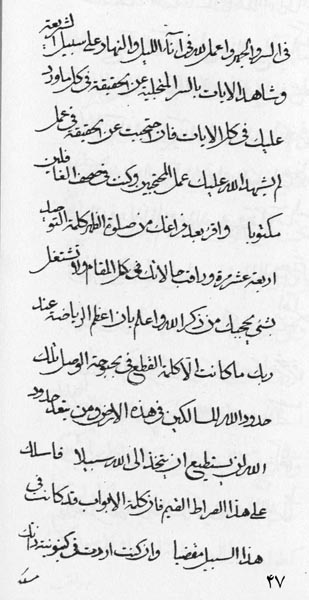 فی السر والجهر واعمل لله فی آناء اللیل والنهار علی سبیل الشریعة
وشاهد الایات بالسر المتجلیة عن الحقیقة فی كل ما ورد
علیك فی كل الایات فان احتجبت عن الحقیقة فی عمل
لم یشهد الله علیك عمل المحتجبین وكنت فی صحف الغافلین
مكتوبا واقرء بعد فراغك من صلوة الظهر كلمة التوحید
اربعة عشر مرة وراقب حالاتك فی كل المقام ولا تشتغل
بشئ یحجبك من ذكر الله واعلم بان اعظم الریاضة عند
ربك ما كانت الا كلمة القطع فی بحبوحة الوصل تلك
حدود الله للسالكین فی هذه الارض ومن یتعد حدود
الله لن یستطیع ان یتخذ الی الله سبیلا فاسلك
علی هذا الصراط القیم فان كلمة الابواب قد كانت فی
هذا السبیل مقضیا وان كنت اردت فی كینونیة ذاتك
۴۷